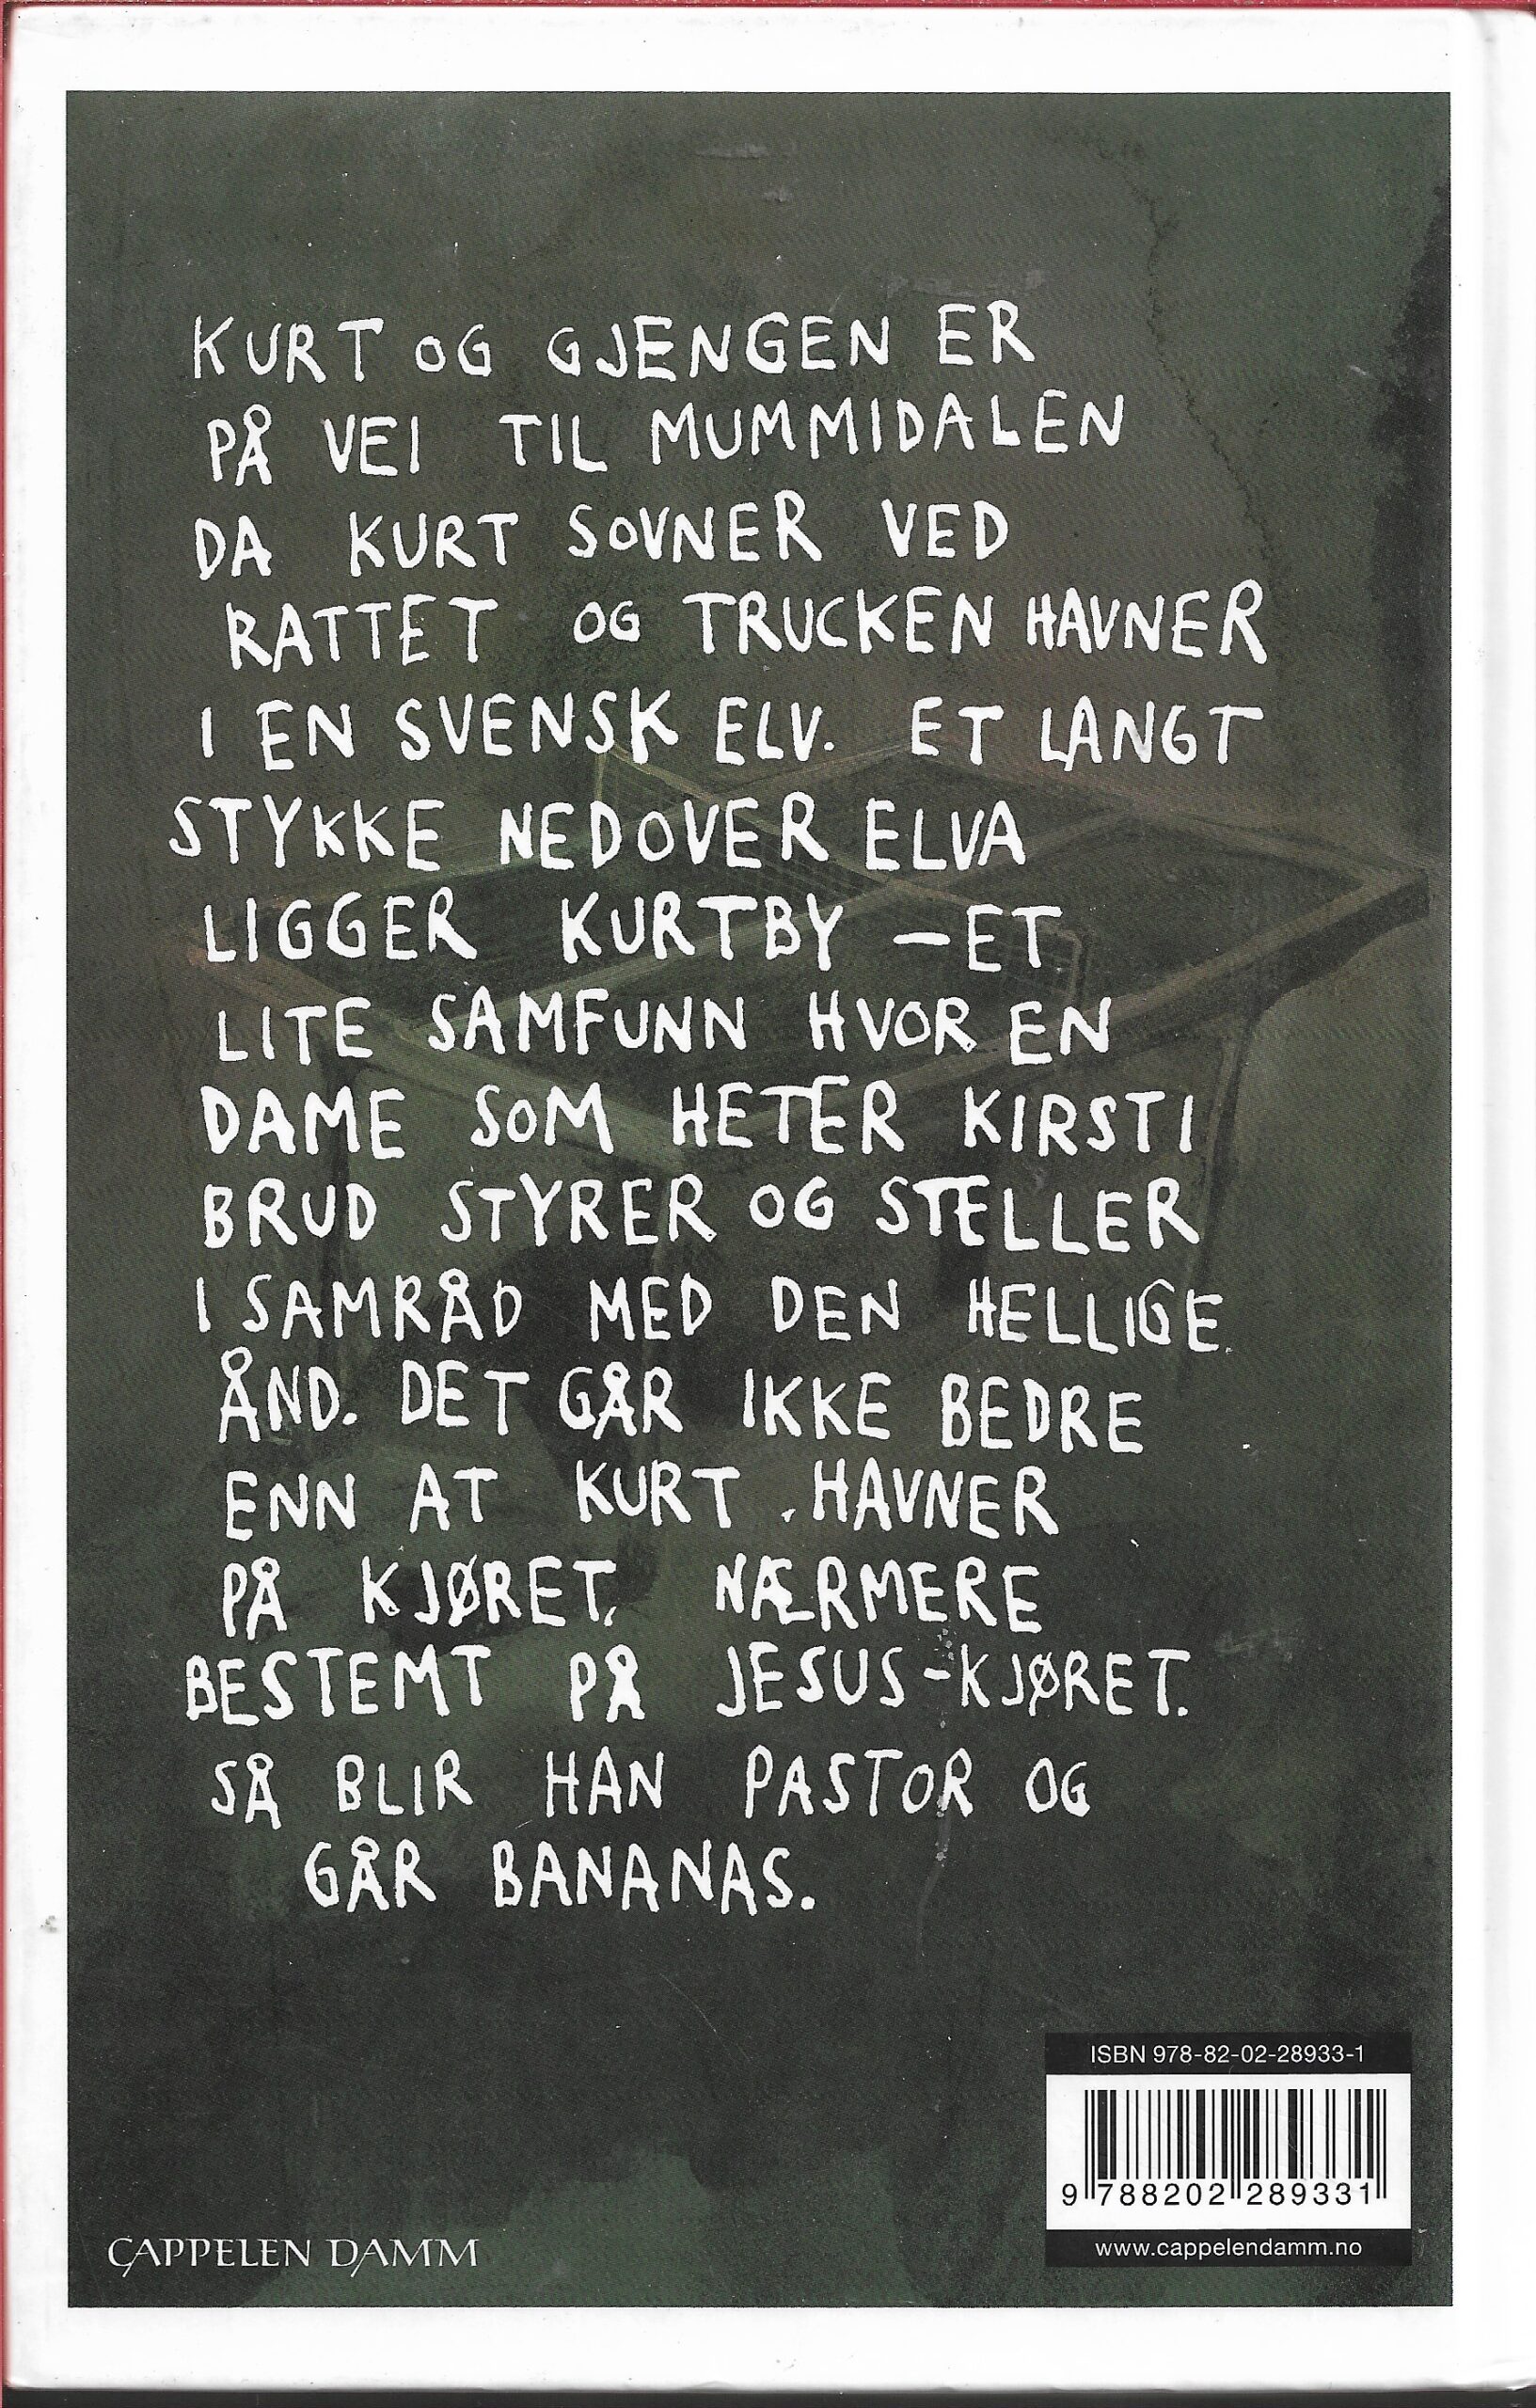 KURT OG GJENGEN ER
PÅ VEI TIL MUMMIDALEN
DA KURT SOVNER VED
RATTET OG TRUCKEN HAVNER
I EN SVENSK ELV. ET LANGT
STYKKE NEDOVER ELVA
LIGGER KURTBY – ET
LITE SAMFUNN HVOR EN
DAME SOM HETER KIRSTI
BRUD STYRER OG STELLER
I SAMRÅD MED DEN HELLIGE
ÅND. DET GÅR IKKE BEDRE
ENN AT KURT HAVNER
PÅ KJØRET, NÆRMERE
BESTEMT PÅ JESUS-KJØRET.
SÅ BLIR HAN PASTOR OG
GÅR BANANAS.
ISBN 978-82-02-28933-1
9 788202 289331
www.cappelendamm.no
CAPPELEN DAMM